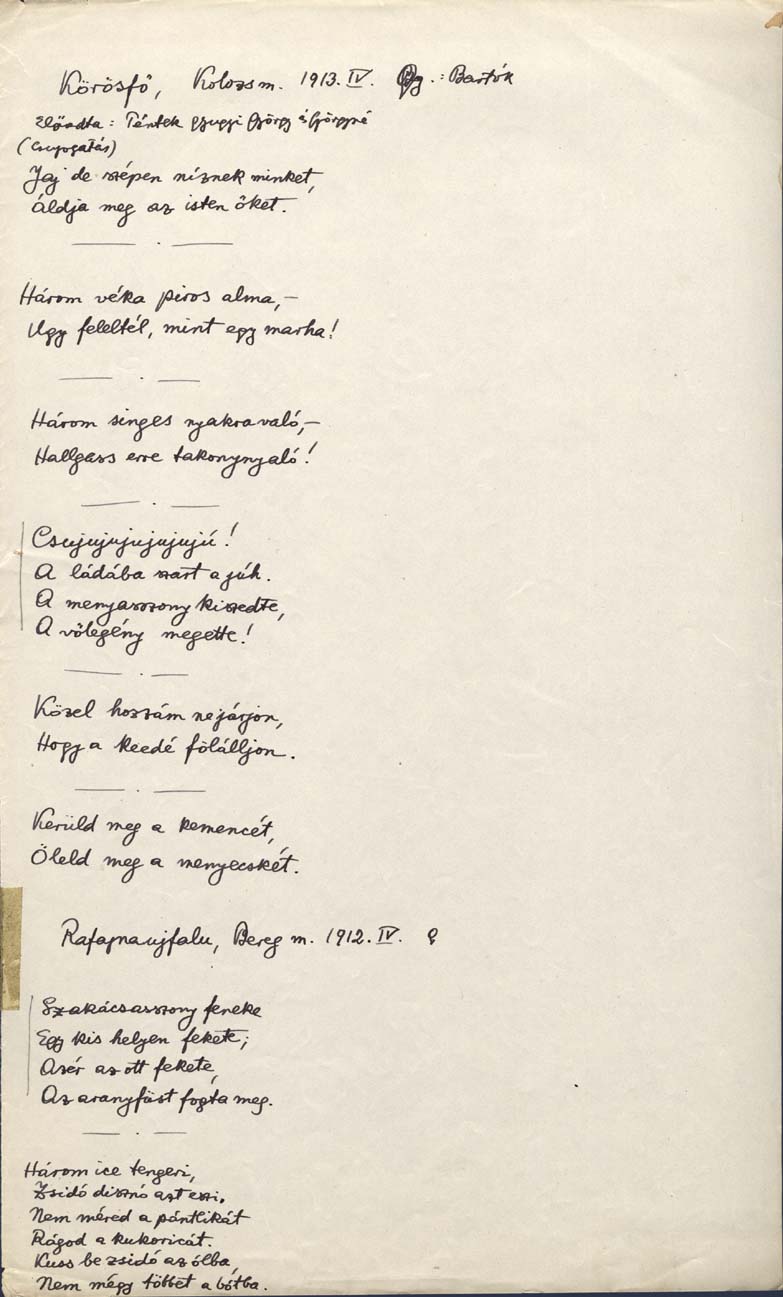 Körösfő, Kolozsm. 1913. IV. Gy.: Bartók
Előadta: Péntek gyugyi György és Györgyné
(Csujogatás)
Jaj de szépen níznek minket,
áldja meg az isten őket.
Három véka piros alma,–
Ugy feleltél, mint egy marha!
Három singes nyakravaló,–
Hallgass erre takonynyaló!
Csujujujujujujú!
A ládába szart a júh.
A menyasszony kiszedte,
A vőlegény megette!
Közel hozzám ne járjon,
Hogy a keedé fölálljon.
Kerüld meg a kemencét,
Öleld meg a menyecskét.
Rafajnaujfalu, Bereg m. 1912. IV.
Szakácsasszony feneke
Egy kis helyen fekete;
Azér az ott fekete,
Az aranyfüst fogta meg.
Három ice tengeri,
Zsidó disznó azt eszi.
Nem méred a pántlikát
Rágod a kukoricát.
Kuss be zsidó az ólba,
Nem mégy többet a bótba.